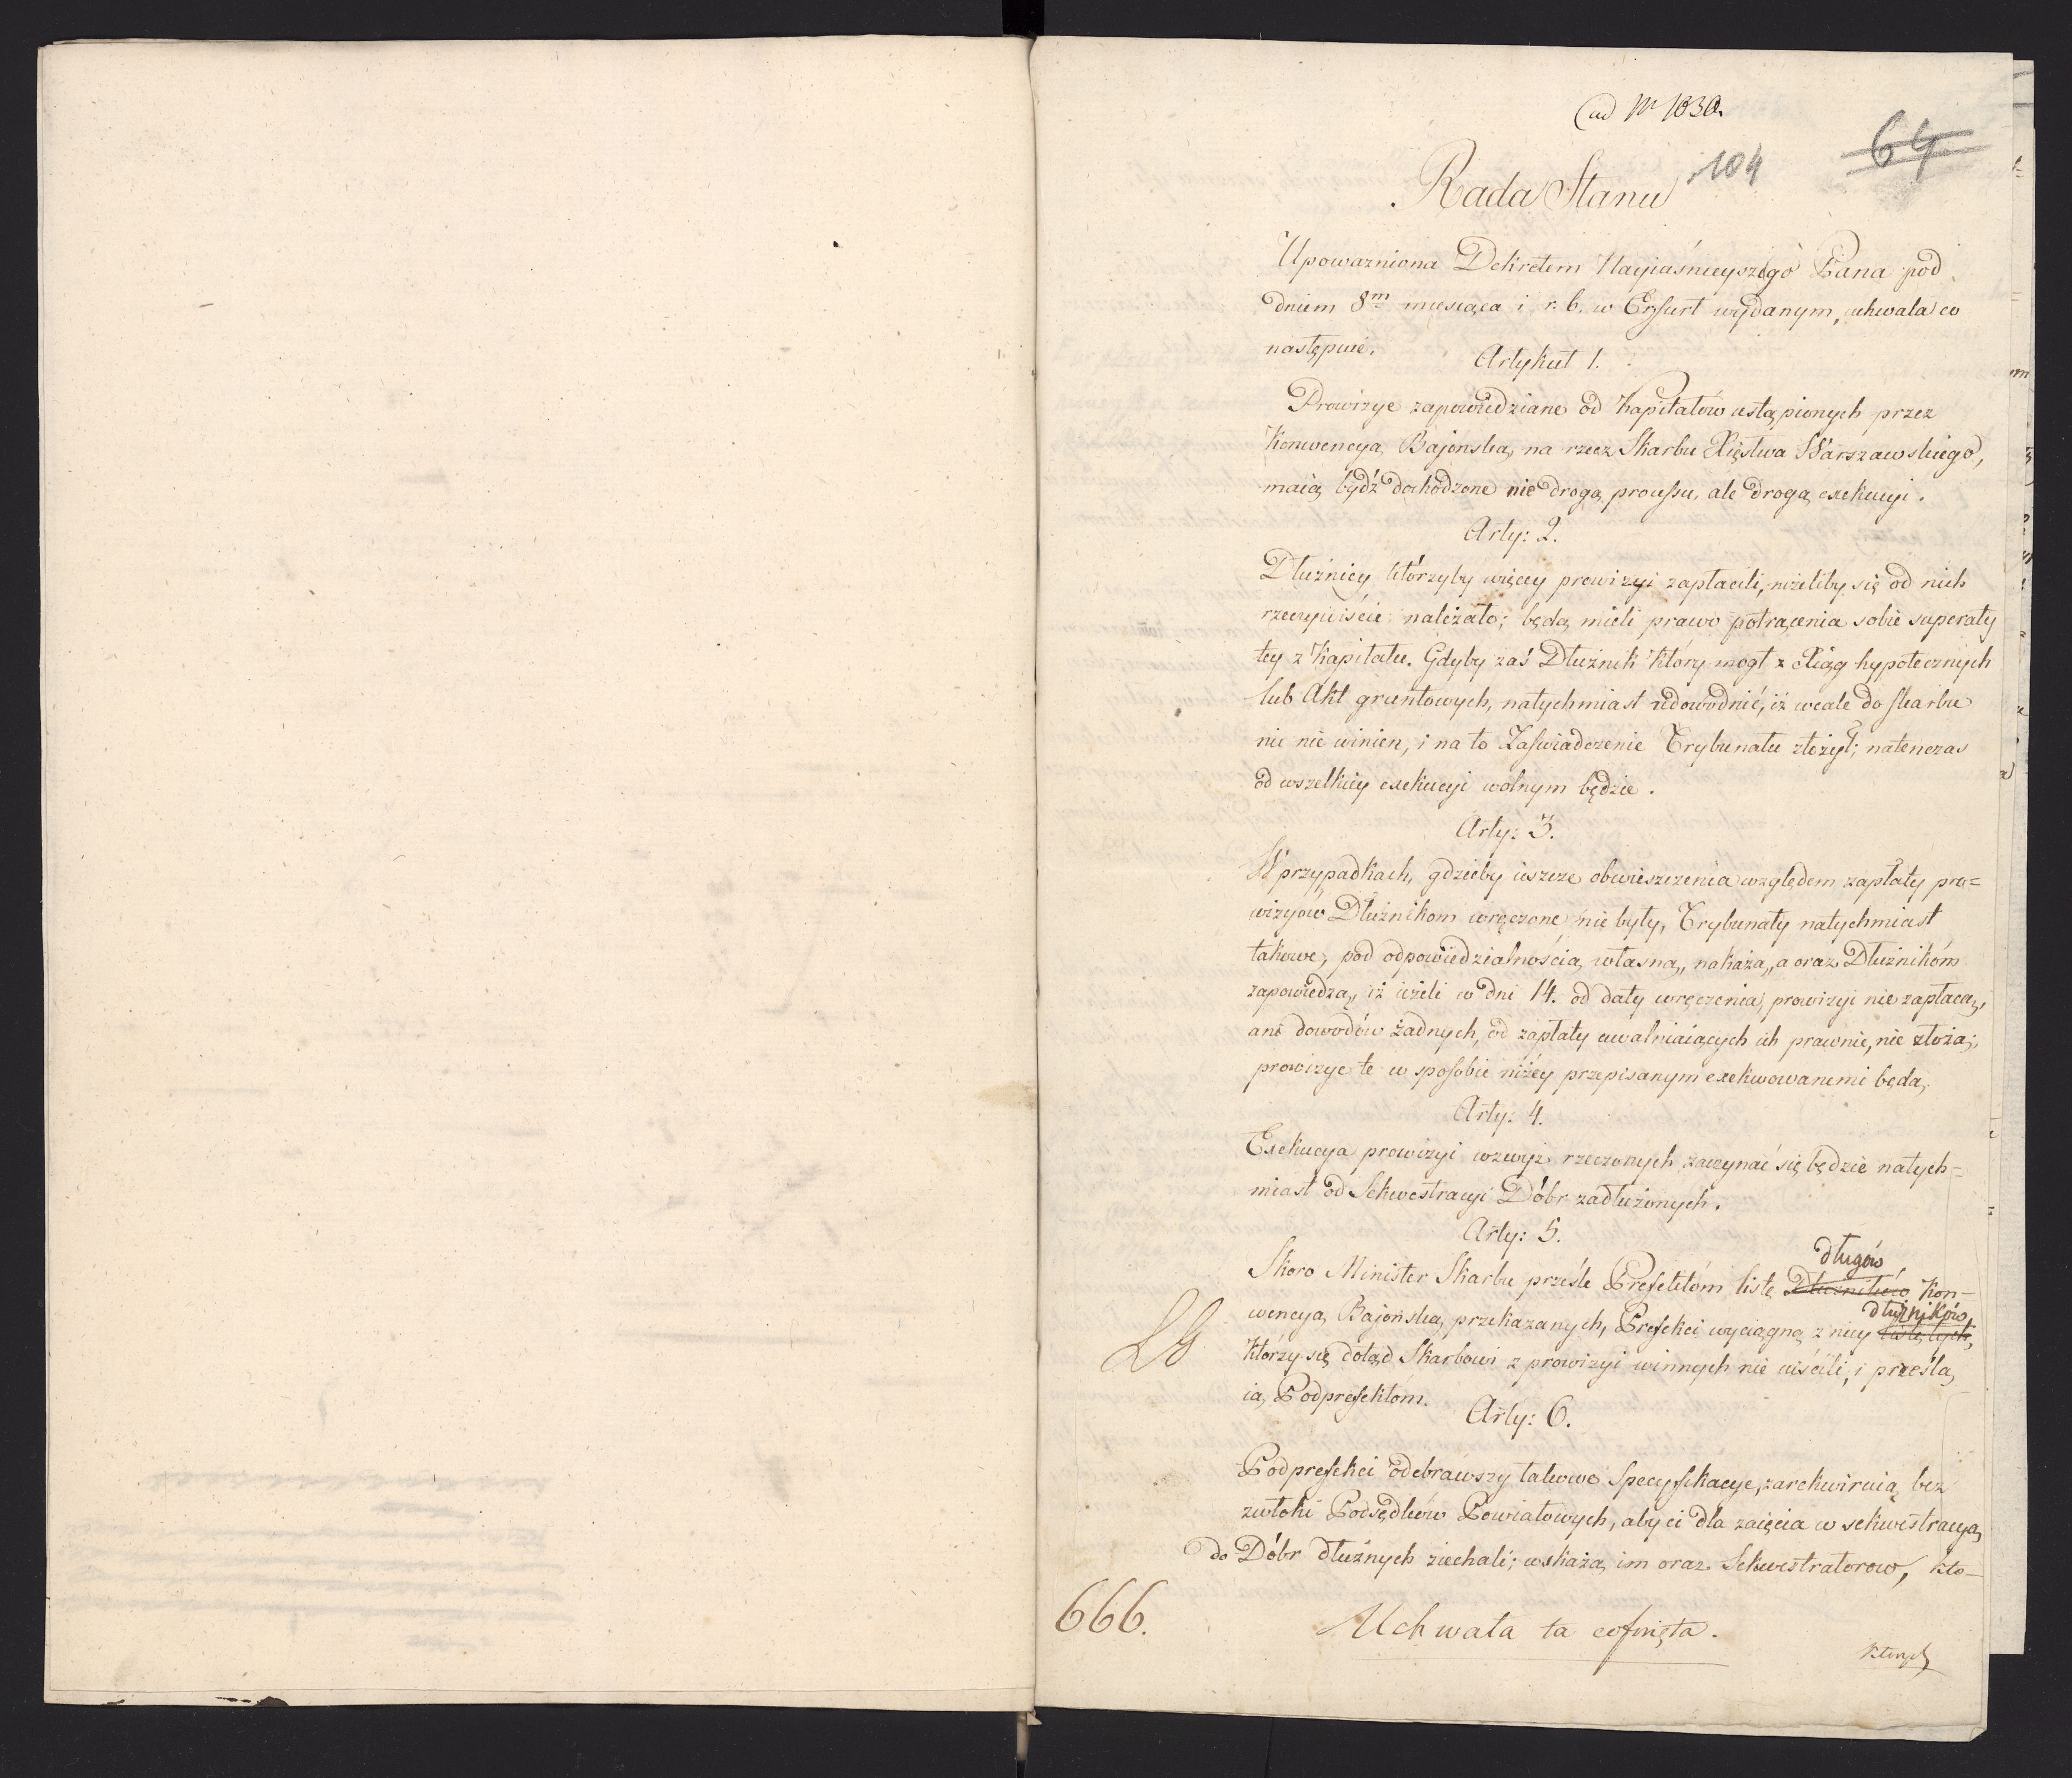 ad Nr 1030.
104
64
Rada Stanu
Upowazniona Dekretem Nayiaśnieyszégo Pana pod
dniem 8m miesiąca i r. b. w Erfurt wydanym, uchwala co
następuie.
Artykuł 1.
Prowizye zapowiedziane od Kapitałów ustąpionych przez
Konwencyą Bajońską, na rzecz Skarbu Xięstwa Warszawskiego,
maią bydź dochodzone nie drogą processu, ale drogą exekucyi.
Arty: 2.
Dłużnicy którzyby więcey prowizyi zapłacili, niżeliby się od nich
rzeczywiście należało; będą mieli prawo potrącenia sobie superaty
tey z Kapitału. Gdyby zaś Dłużnik który mogł z Xiąg hypotecznych
lub Akt gruntowych, natychmiast udowodnić, iż wcale do skarbu
nic nie winien, i na to Zaświadczenie Trybunału złożył; natenczas
od wszelkiey exekucyi wolnym będzie.
Arty: 3.
W przypadkach, gdzieby ieszcze obwieszczenia względem zapłaty pro=
wizyów Dłużnikom wręczone nie były, Trybunały natychmiast
takowe, pod odpowiedzialnością własną, nakażą, a oraz Dłużnikóm
zapowiedzą, iż ieżeli w dni 14. od daty wręczenia, prowizyi nie zapłacą,
ani dowodów żadnych, od zapłaty uwalniaiących ich prawnie, nie złożą;
prowizye te w sposobie niżéy przepisanym exekwowanemi będą.
Arty: 4.
Exekucya prowizyi wzwyż rzeczonych zaczynać się będzie natych=
miast od Sekwestracyi Dóbr zadłużonych.
Arty: 5.
długów
Skoro Minister Skarbu prześle Prefektóm listę Dłużników Kon-
dłużników,
wencyą Bajońską przekazanych, Prefekci wyciągną z niey listę tych,
którzy się dotąd Skarbowi z prowizyi winnych nie uiścili, i prześlą
ią Podprefektóm.
Arty: 6.
Podprefekci odebrawszy takowe Specyfikacye, zarekwiruią bez
zwłoki Podsędków Powiatowych, aby ci dla zaięcia w sekwestracyą
do Dóbr dłużnych ziechali; wskażą im oraz Sekwestratorow, kto-
666.
Uchwała ta cofnięta.
których